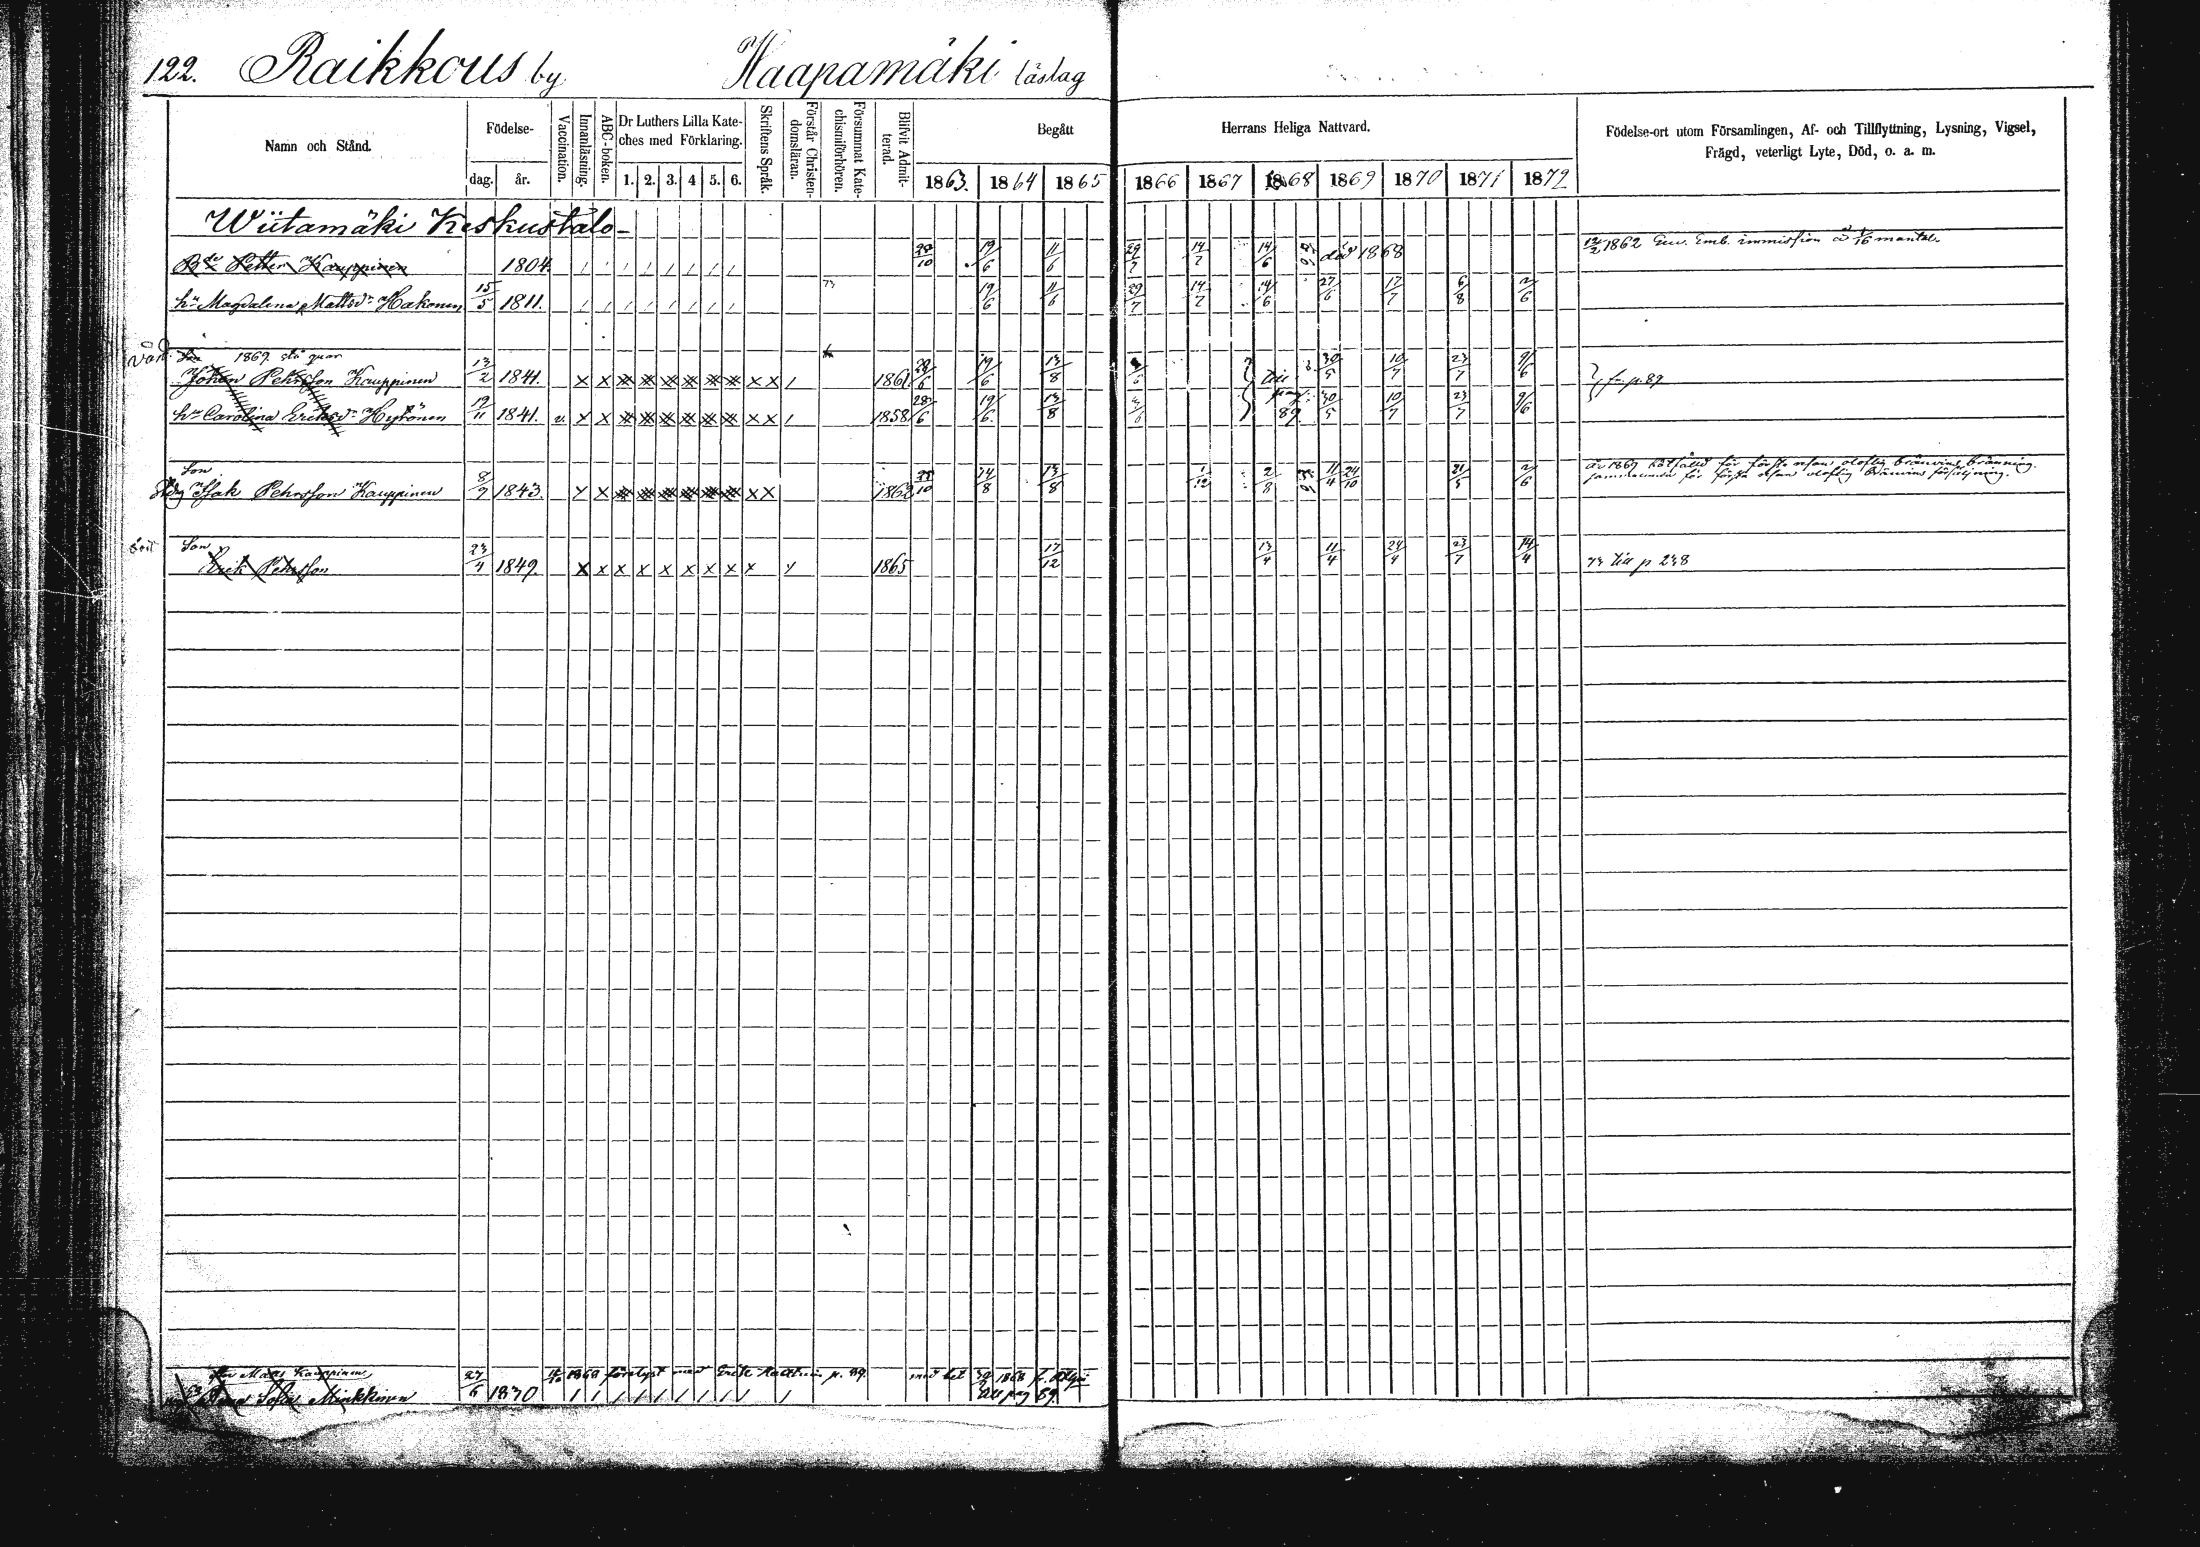 122. Raikkous by Haapamäki läslag
Namn och Stånd. Födelse- dag. år. Vaccination. Innanläsning. ABC-boken. Dr Luthers Lilla Kateches med Förklaring. 1. 2. 3. 4 5. 6. Skriftens Språk. Förstår Christendomsläran. Försummat Katechismiförhören. Blifvit Admitterad. Begått Herrans Heliga Nattvard. Födelse-ort utom Församlingen, Af- och Tillflyttning, Lysning, Vigsel, Frägd, veterligt Lyte, Död, o. a. m.
1863. 1864 1865 1866 1867 1868 1869 1870 1871 1872
Wiitamäki Keskustalo
Petter Kauppinen 1804. 19/6 11/6 29/7 14/7 14/6 död 1868 1862 immission å 1/16 mantal
hu Magdalena Mattsdr Hakonen 15/5 1811. 19/6 11/6 29/7 14/7 14/6 27/6 17/7 6/8 2/6
1869
Johan Pehrsson Kauppinen 13/2 1841. x x x x / 1861. 28/6 19/6 13/8 till pag. 89. 30/5 10/7 23/7 9/6 f. p. 89
hu Carolina Ericsdr Hyvönen 19/11 1841. v. x x x x / 1858. 28/6 19/6 13/8 3/6 30/5 10/7 23/7 9/6
Son
Isak Pehrsson Kauppinen 8/9 1843. x x x x 14/8 13/8 1/12 2/8 11/4 24/10 21/5 2/6
år 1867 sakfälld för första resan oloflig bränvins bränning.
för första resan oloflig bränvins försäljning.
Son
Erik Pehrsson 23/4 1849. x x x x x x x x x 1865 17/12 13/4 11/4 24/4 23/7 14/4 73 till p 238
Mats Kauppinen 1868 förlyst med p. 89. med bet 1868
Sofia Minkkinen 27/6 1830 till pag 89.